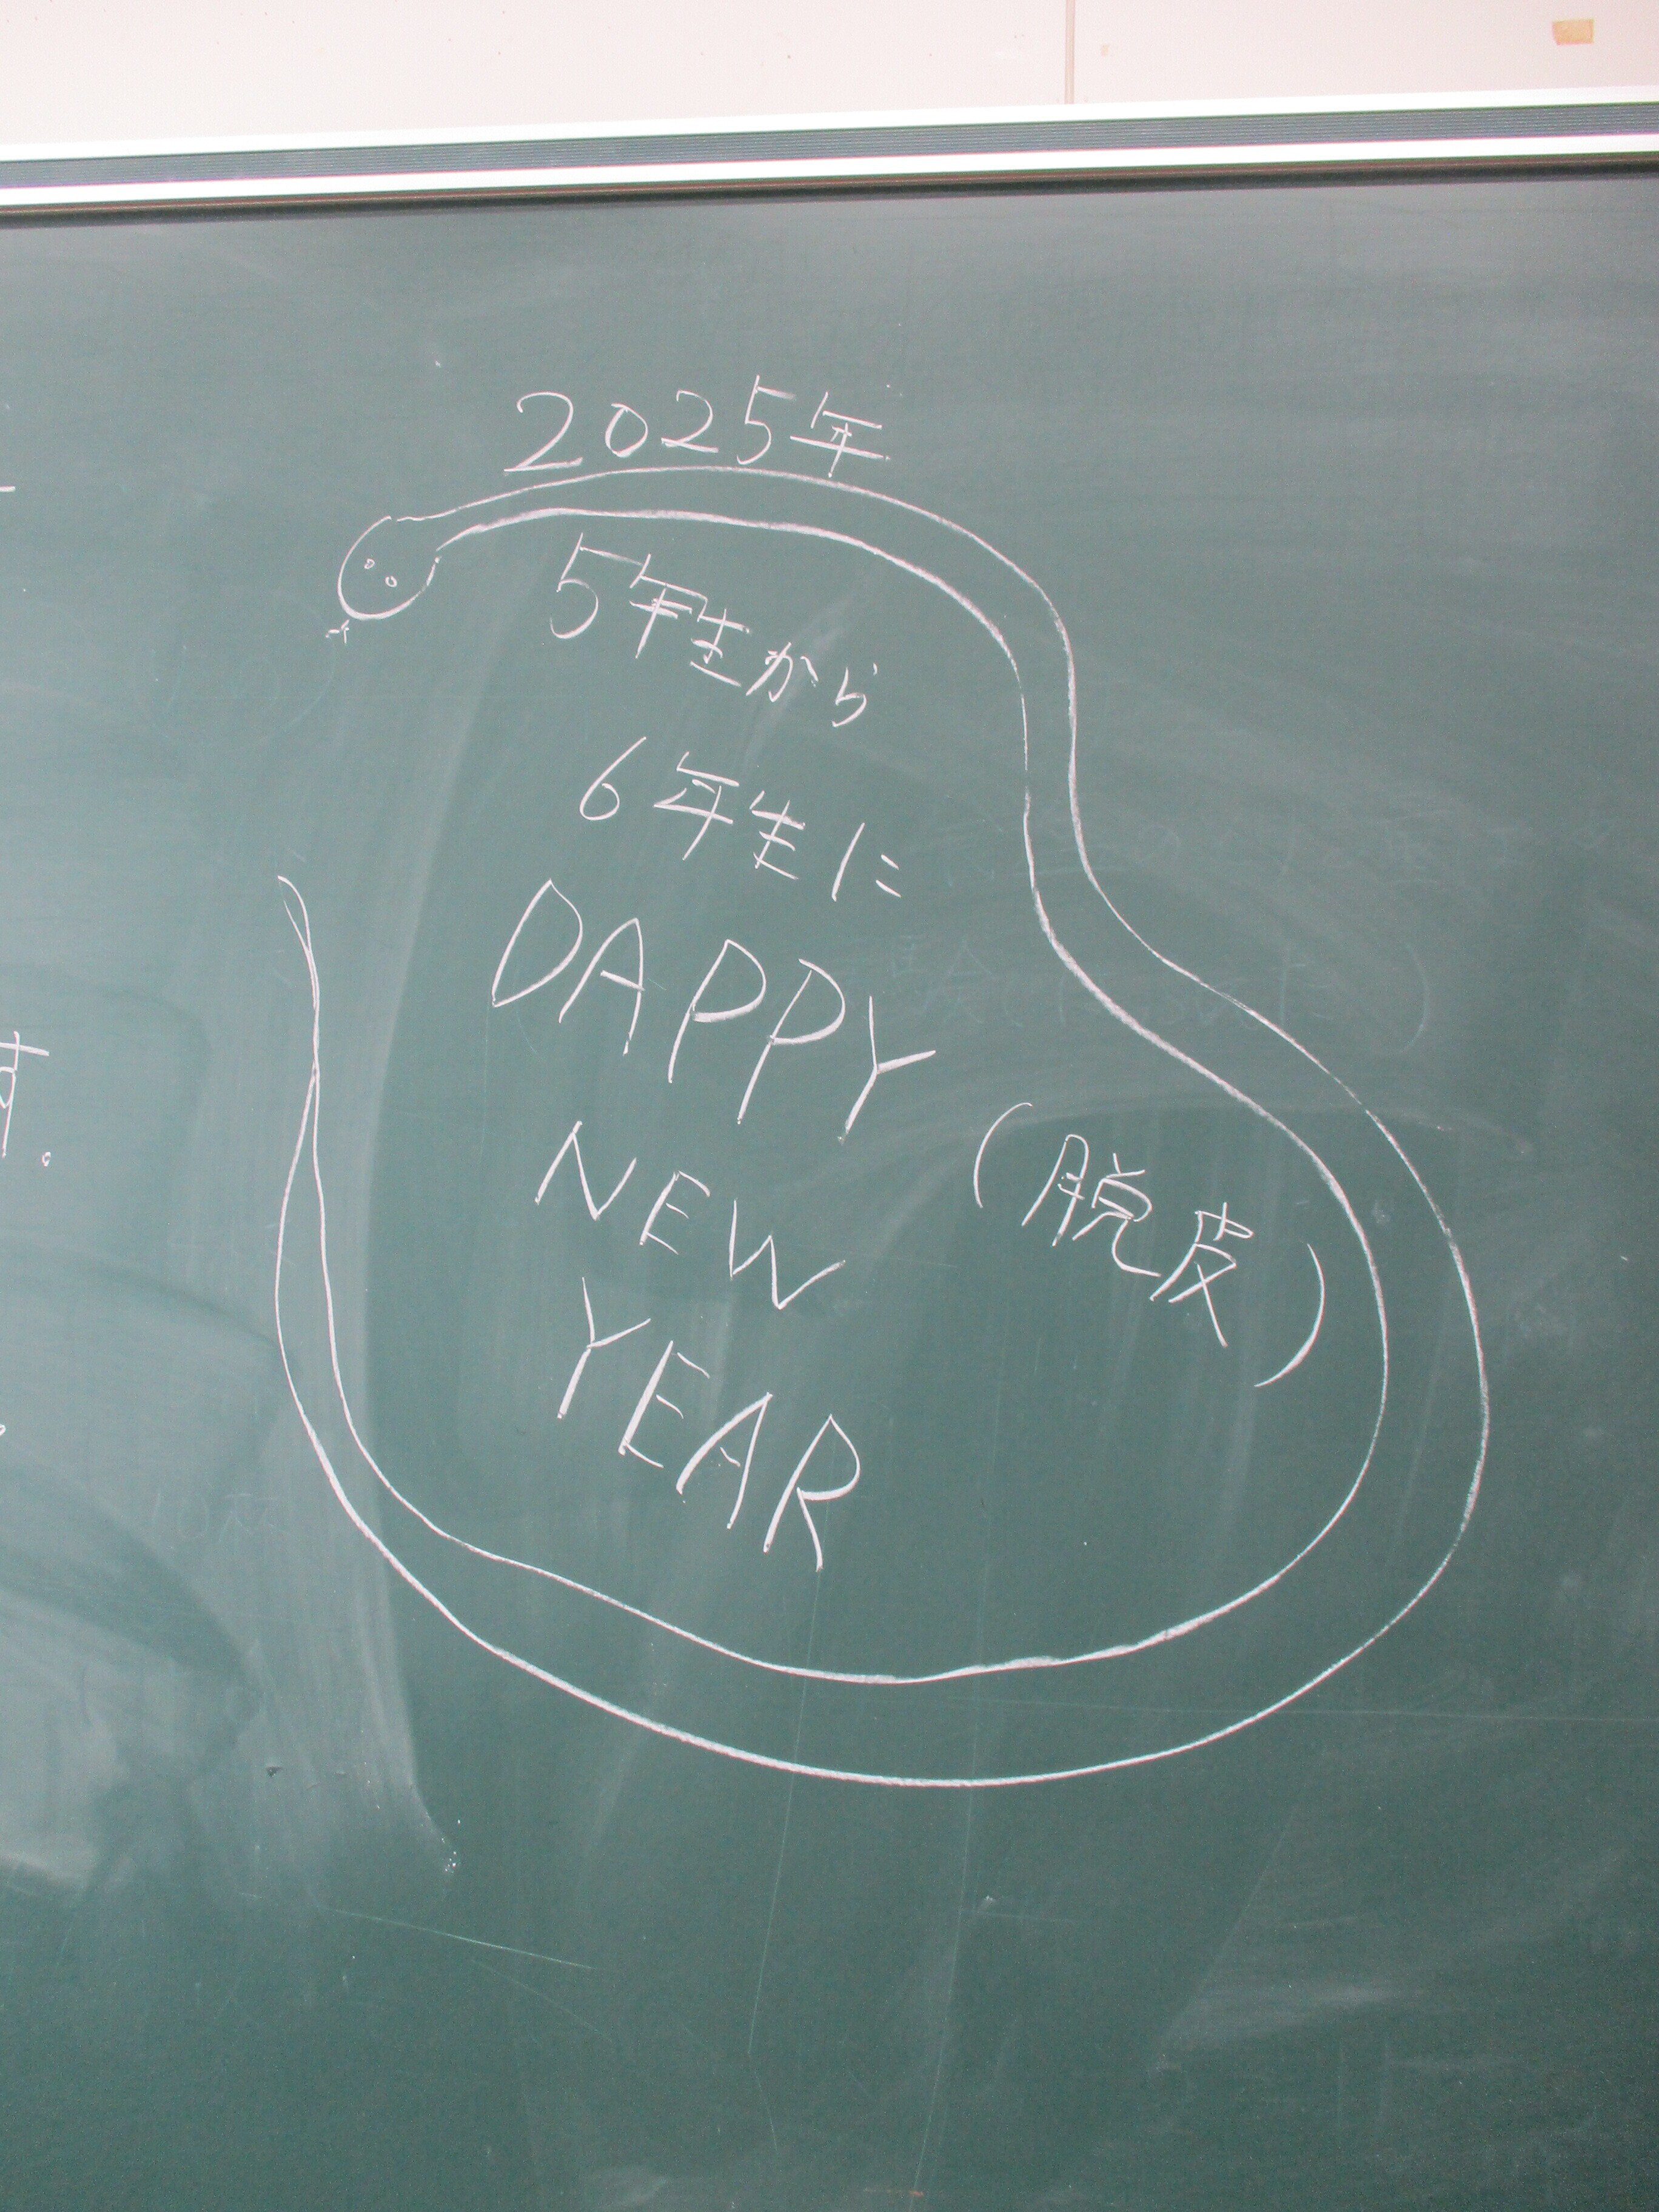 2025年
5年生から
6年生に
DAPPY
(脱皮)
NEW
YEAR
す。